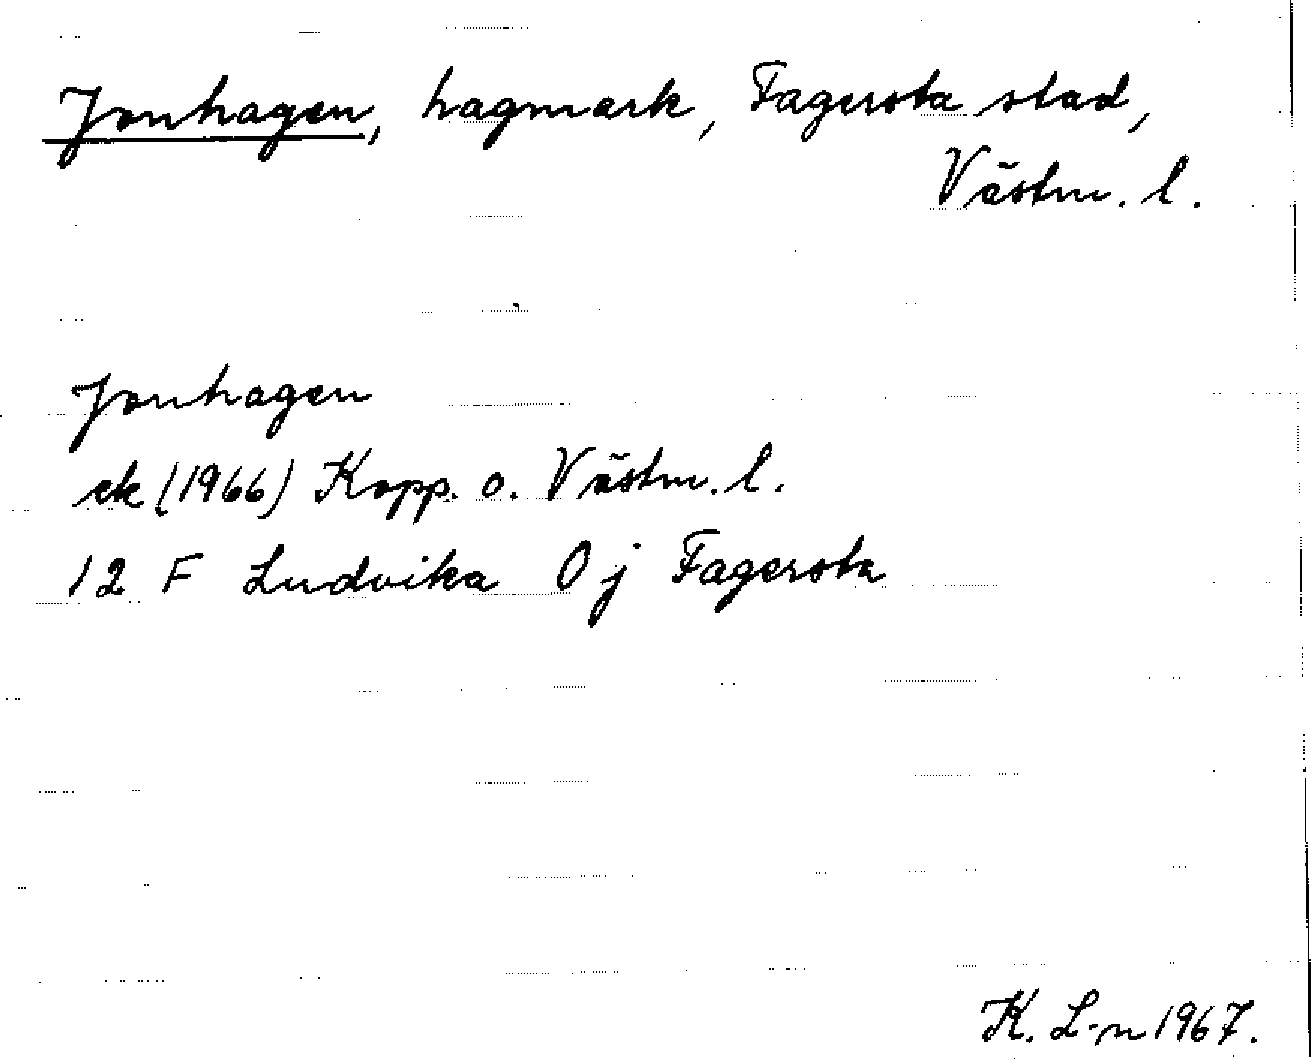 Jonhagen, hagmark, Fagersta stad,
Västm. l.
Jonhagen
ek (1966) Kopp. o. Västm. l.
12 F Ludvika 0 j Fagersta
K. L-n 1967.